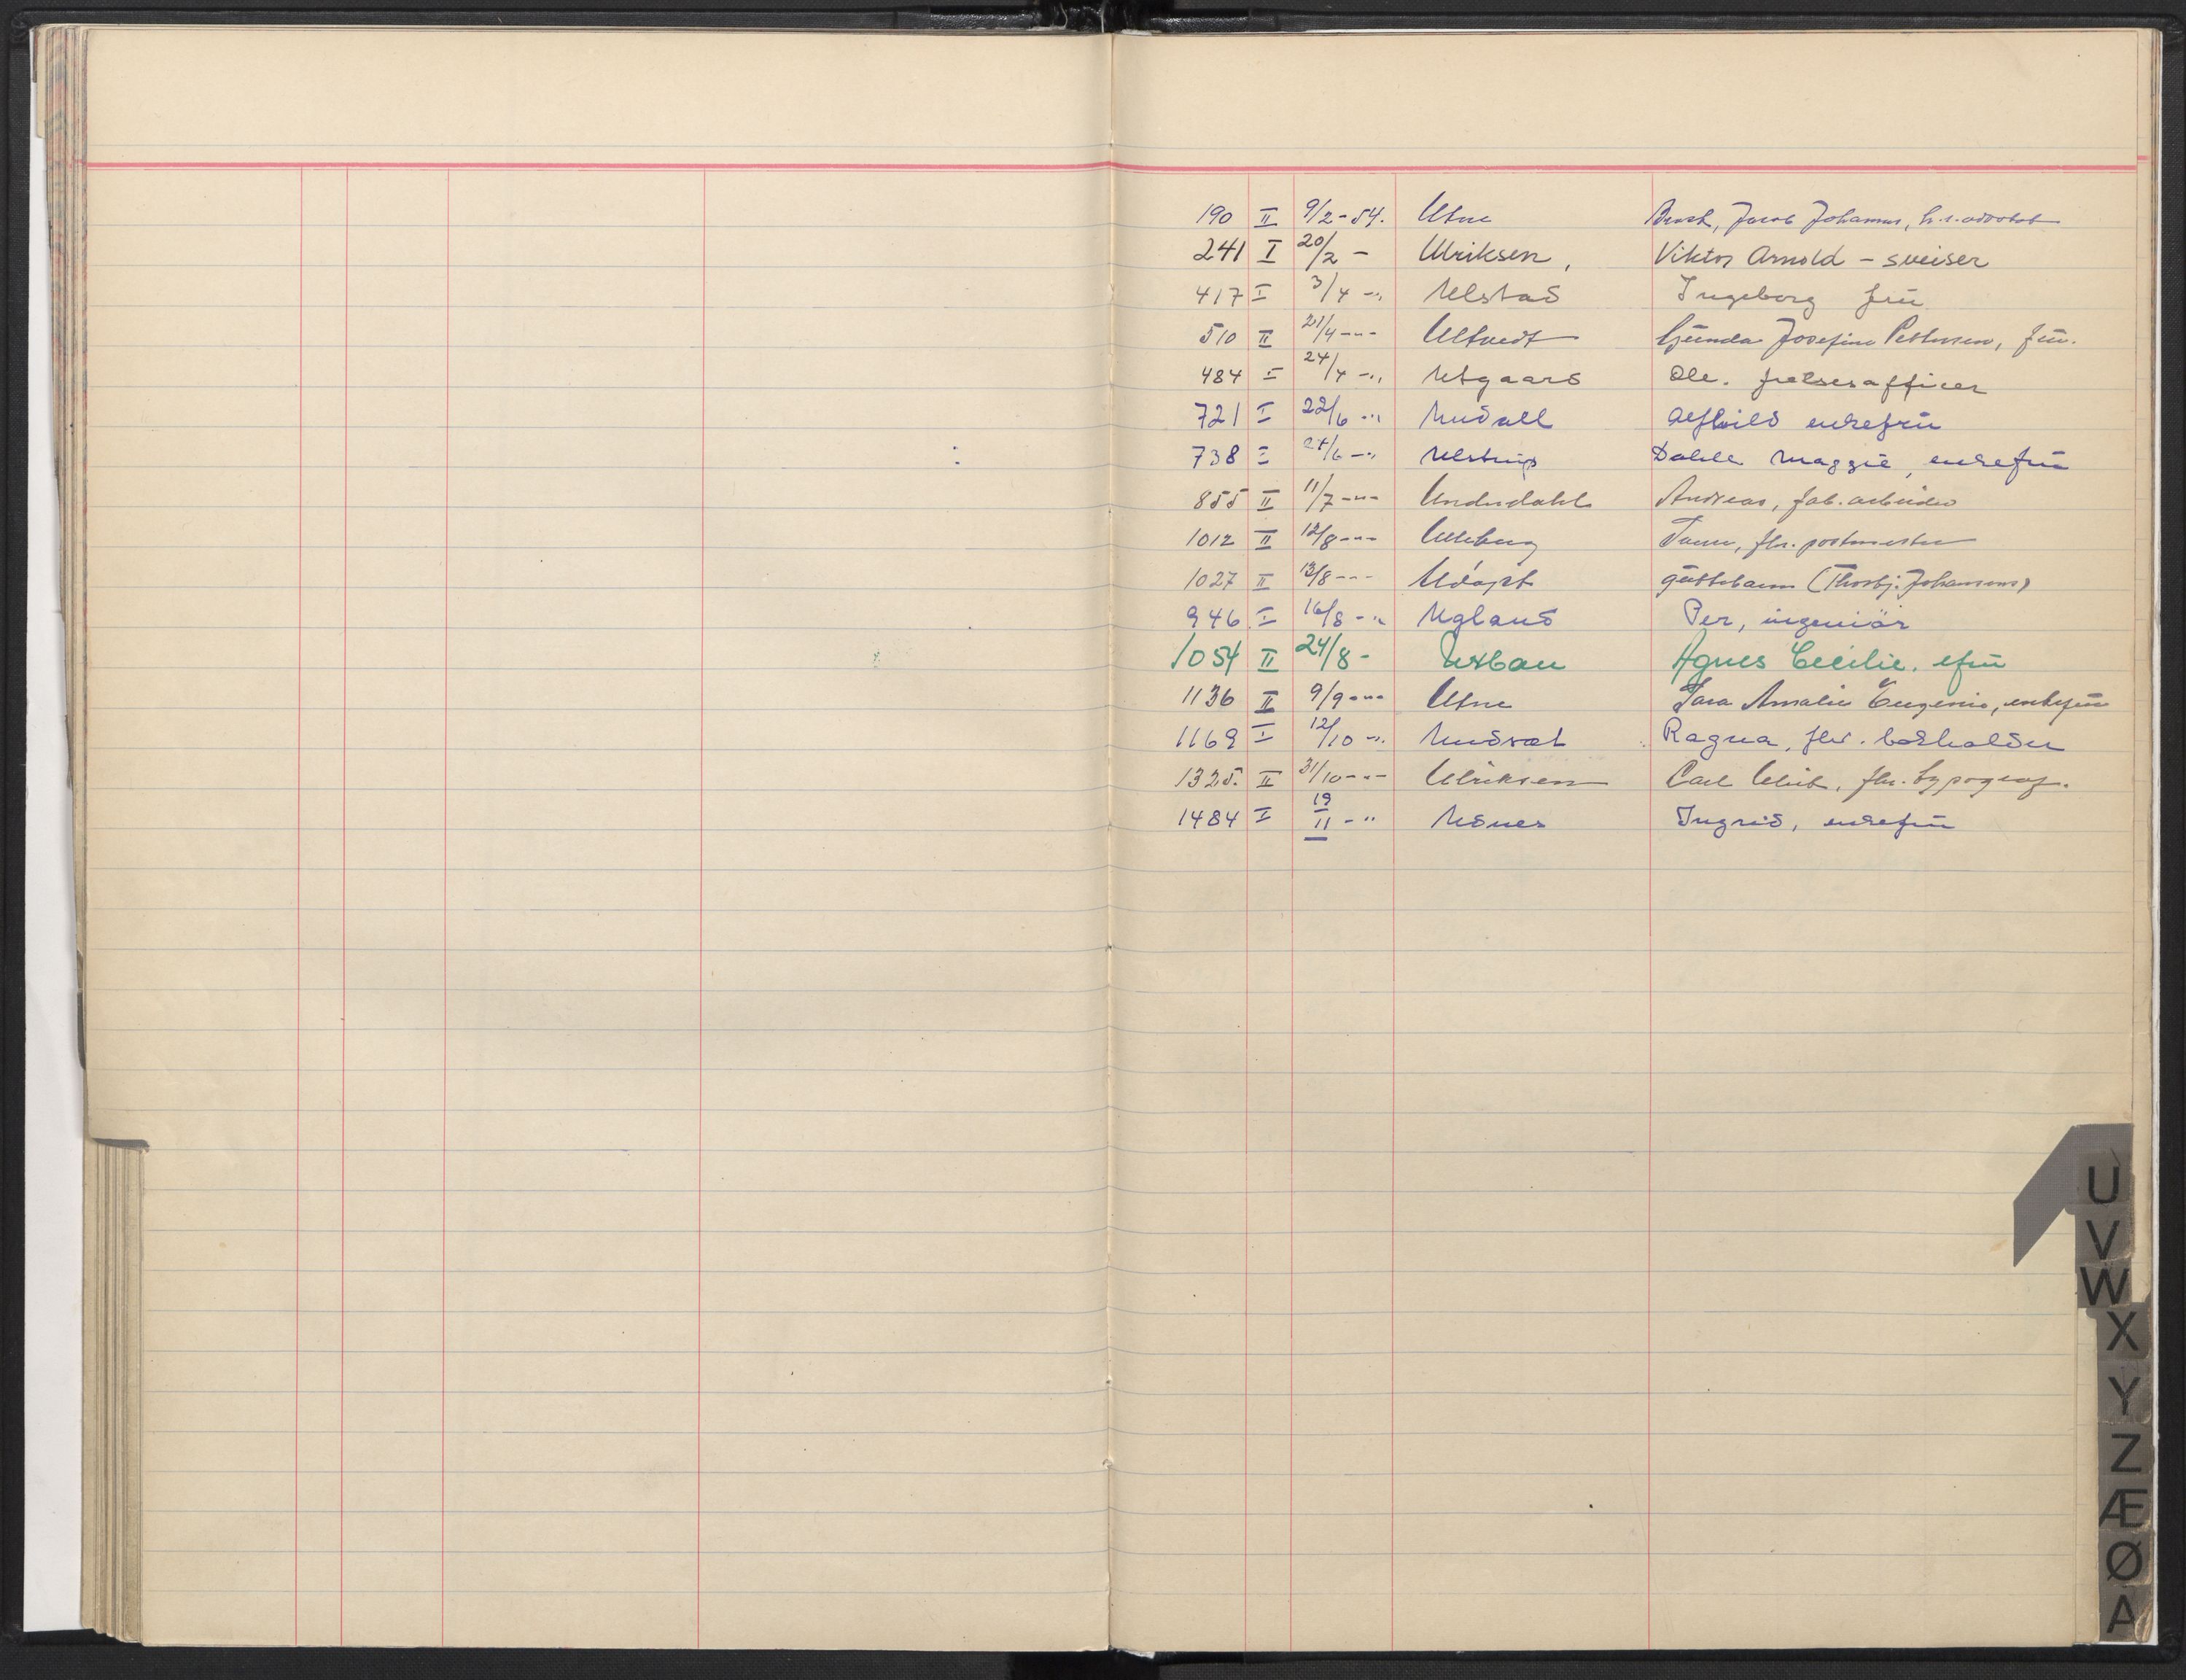 190 II 9/2-54. Utne Brock, Jacob Johannes, h.r.advokat
241 I 20/2 - Ulriksen, Viktor Arnold - sveiser
417 I 3/4 -"- Ulstad Ingeborg frü
510 II 21/4 -"- Ultvedt Gunda Josefine Pettersen, frü.
484 I 24/4 -"- Utgaard Ole. frelsesofficer
721 I 22/6 -"- Undall Alfhild enkefrü
738 I 24/6 -"- Ulstrup Dahle Maggie, enkefrü
855 II 11/7 -"- Underdahl Andreas, fab.arbeider
1012 II 12/8 -"- Ulleberg Tønn, fhv. postmester
1027 II 13/8 -"- Udøpt güttebarn (Thorbj. Johansens)
946 I 16/8 -"- Ugland Per, ingeniör
1054 II 24/8 - Urban Agnes Cecilie. efrü
1136 II 9/9 -"- Utne Sara Amalie Eugenie, enkefrü
1169 I 12/10 -"- Undset Ragna, fhv. bokholder
1325. II 31/10 -"- Ulriksen Carl, fhv. typograf.
1484 I 19/11 -"- Usnes Ingrid, enkefrü
U
V
W
X
Y
Z
Æ
Ø
A